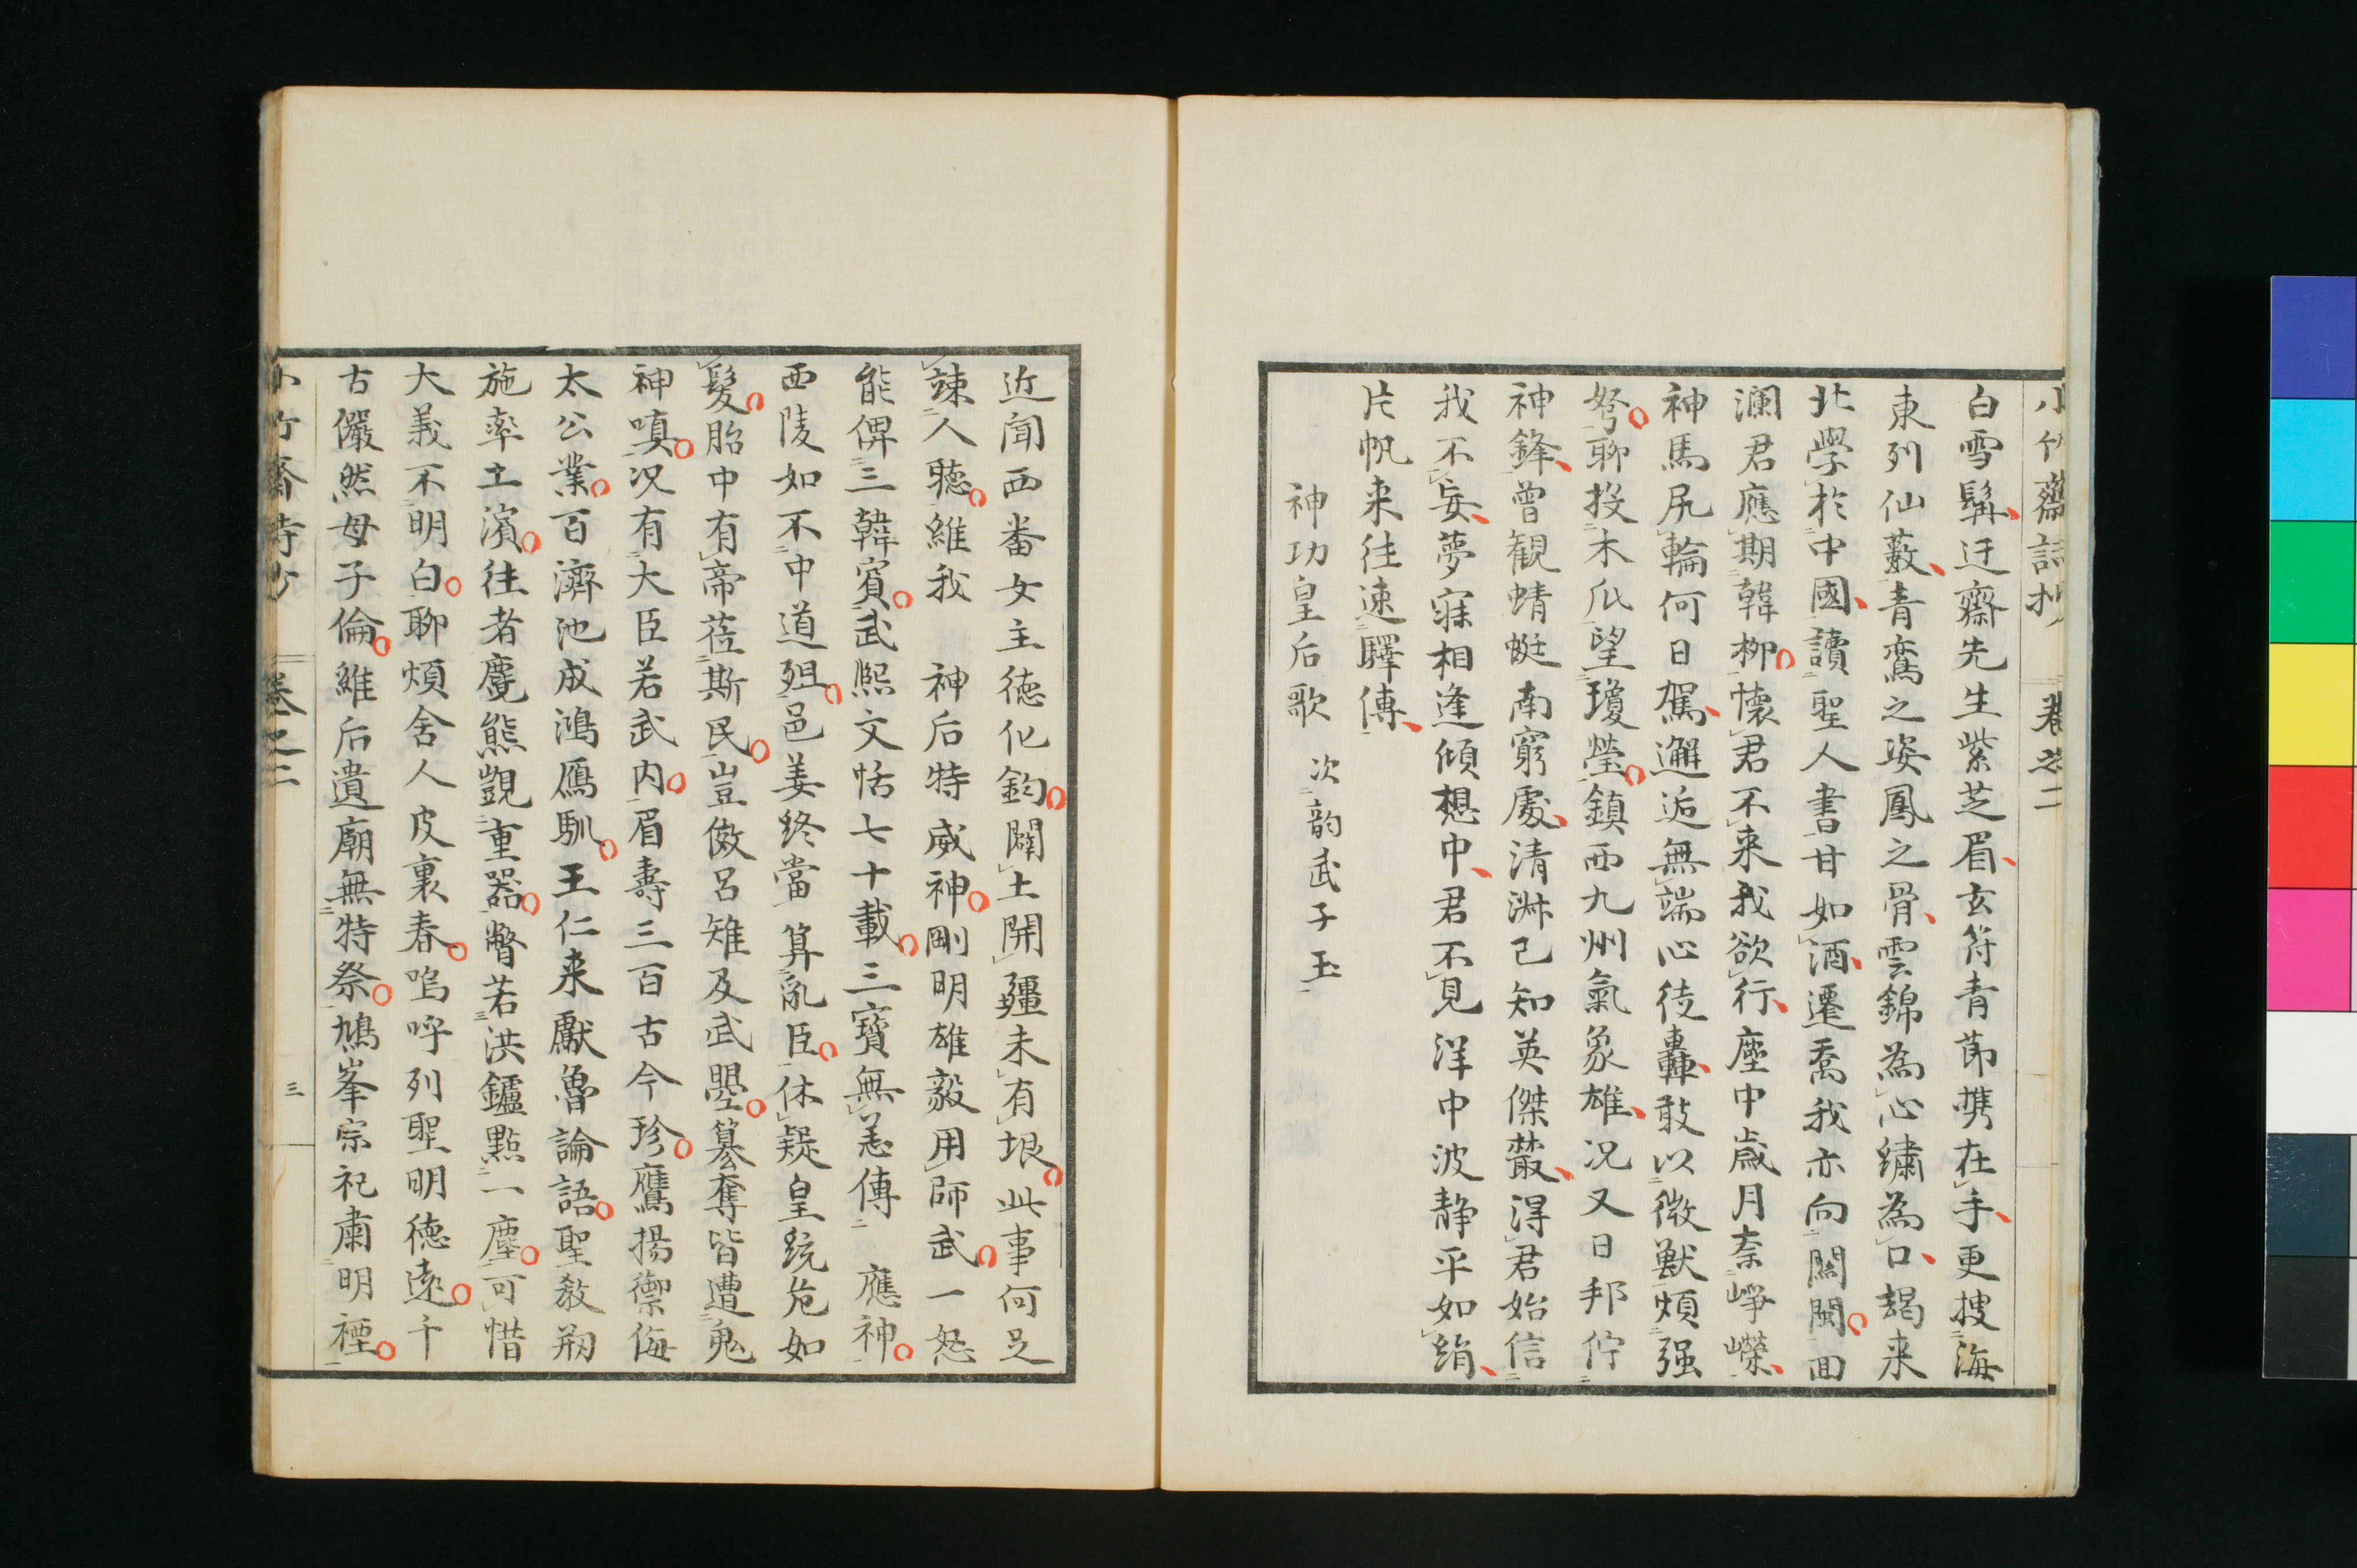 小竹齋詩抄 卷之二
白雪髯迂齋先生紫芝眉玄符青莭携在手更捜海
東列仙藪青鸞之姿鳳之骨雲錦為心繡為口朅来
北學於中國讀聖人書甘如酒遷喬我亦向關閩回
瀾君應期韓柳懷君不来我欲行塵中歳月奈崢嶸
神馬尻輪何日駕邂逅無端心徒轟敢以微獣煩强
弩聊投木瓜望瓊瑩鎮西九州氣象雄况又日邦佇
神鋒曾観蜻蜓南窮處清淋已知英傑叢得君始信
我不妄夢寐相逢傾想中君不見洋中波静平如絹
片帆来往速驛傳
神功皇后歌 次韵武子玉
近聞西畨女主徳化鈞闢土開疆未有垠此事何足
竦人聴維我 神后特威神剛明雄毅用師武一怒
能俾三韓賓武熈文恬七十載三寳無恙傳 應神
西陵如不中道殂邑姜終當算亂臣休疑皇統危如
髮胎中有帝莅斯民豈傚呂雉及武曌簒奪皆遭鬼
神嗔况有大臣若武内眉壽三百古今珍鷹揚禦侮
太公業百濟池成鴻鴈馴王仁来獻魯論語聖教荊
施率土濱往者麑熊覬重器瞥若洪鑪點一塵可惜
大義不明白聊煩舍人皮裏春嗚呼列聖明徳遠千
古儼然母子倫維后遺廟無特祭鳩峯宗祀肅明禋
小竹齋詩抄 卷之二 三